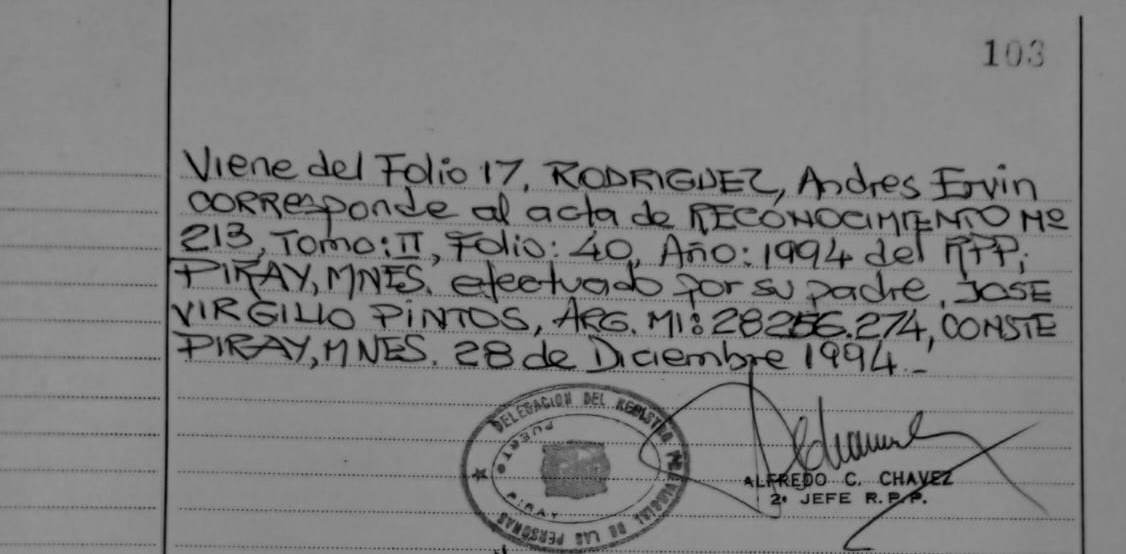 103
Viene del Folio 17, RODRIGUEZ, Andres Ervin
CORResponde al acta de RECONOCIMIENTO Nº
213, Tomo: II, Folio: 40, Año: 1994 del RPP;
PIRAY, MNES. efectuado por su padre, JOSE
VIRGILIO PINTOS, ARG. MI: 28256.274, CONSTE
PIRAY, MNES. 28 de Diciembre 1994.-
DELEGACION DEL REGISTRO PROVINCIAL DE LAS PERSONAS
PUERTO
PIRAY
ALFREDO C. CHAVEZ
2º JEFE R.P.P.